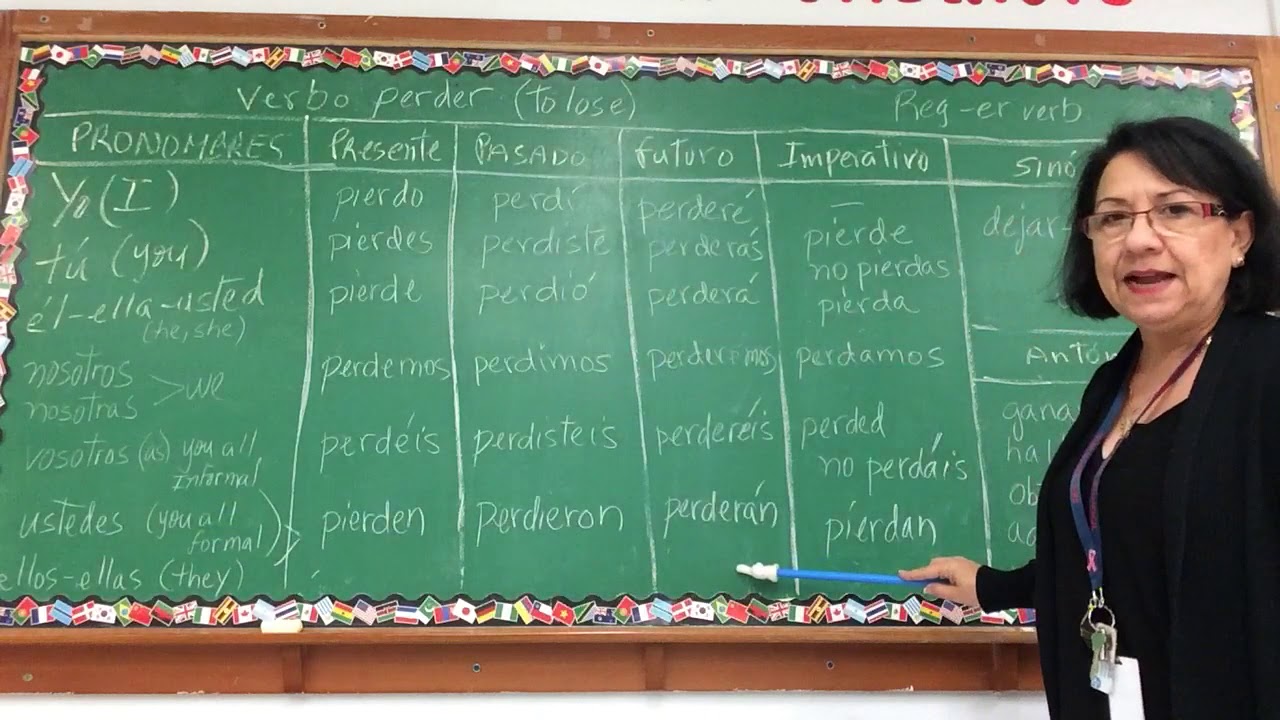 Verbo perder (to lose) Reg -er verb
PRONOMBRES Presente PASADO futuro Imperativo SINÓ
Yo (I) pierdo perdí perderé —
tú (you) pierdes perdiste perderás pierde
no pierdas
dejar-
él-ella-usted pierde perdió perderá pierda
(he, she)
nosotros >we perdemos perdimos perderemos perdamos Antón
nosotras
vosotros (as) you all perdéis perdisteis perderéis perded gana
Informal no perdáis hal
ustedes (you all pierden perdieron perderán pierdan
formal)
ellos-ellas (they)